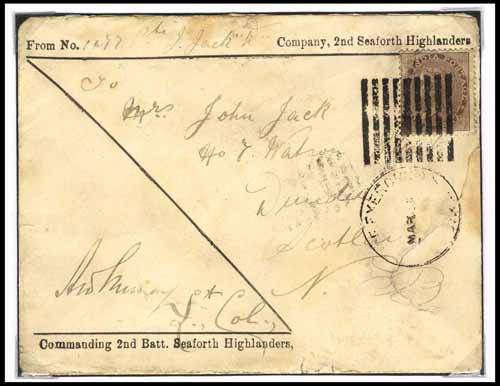 From No. 1277 Pte J. Jack Company, 2nd Seaforth Highlanders
To
Mr. John Jack
Ho J. Watson
Dundee
Scotland
N. B
Lt. Col.
Commanding 2nd Batt. Seaforth Highlanders,
MAR